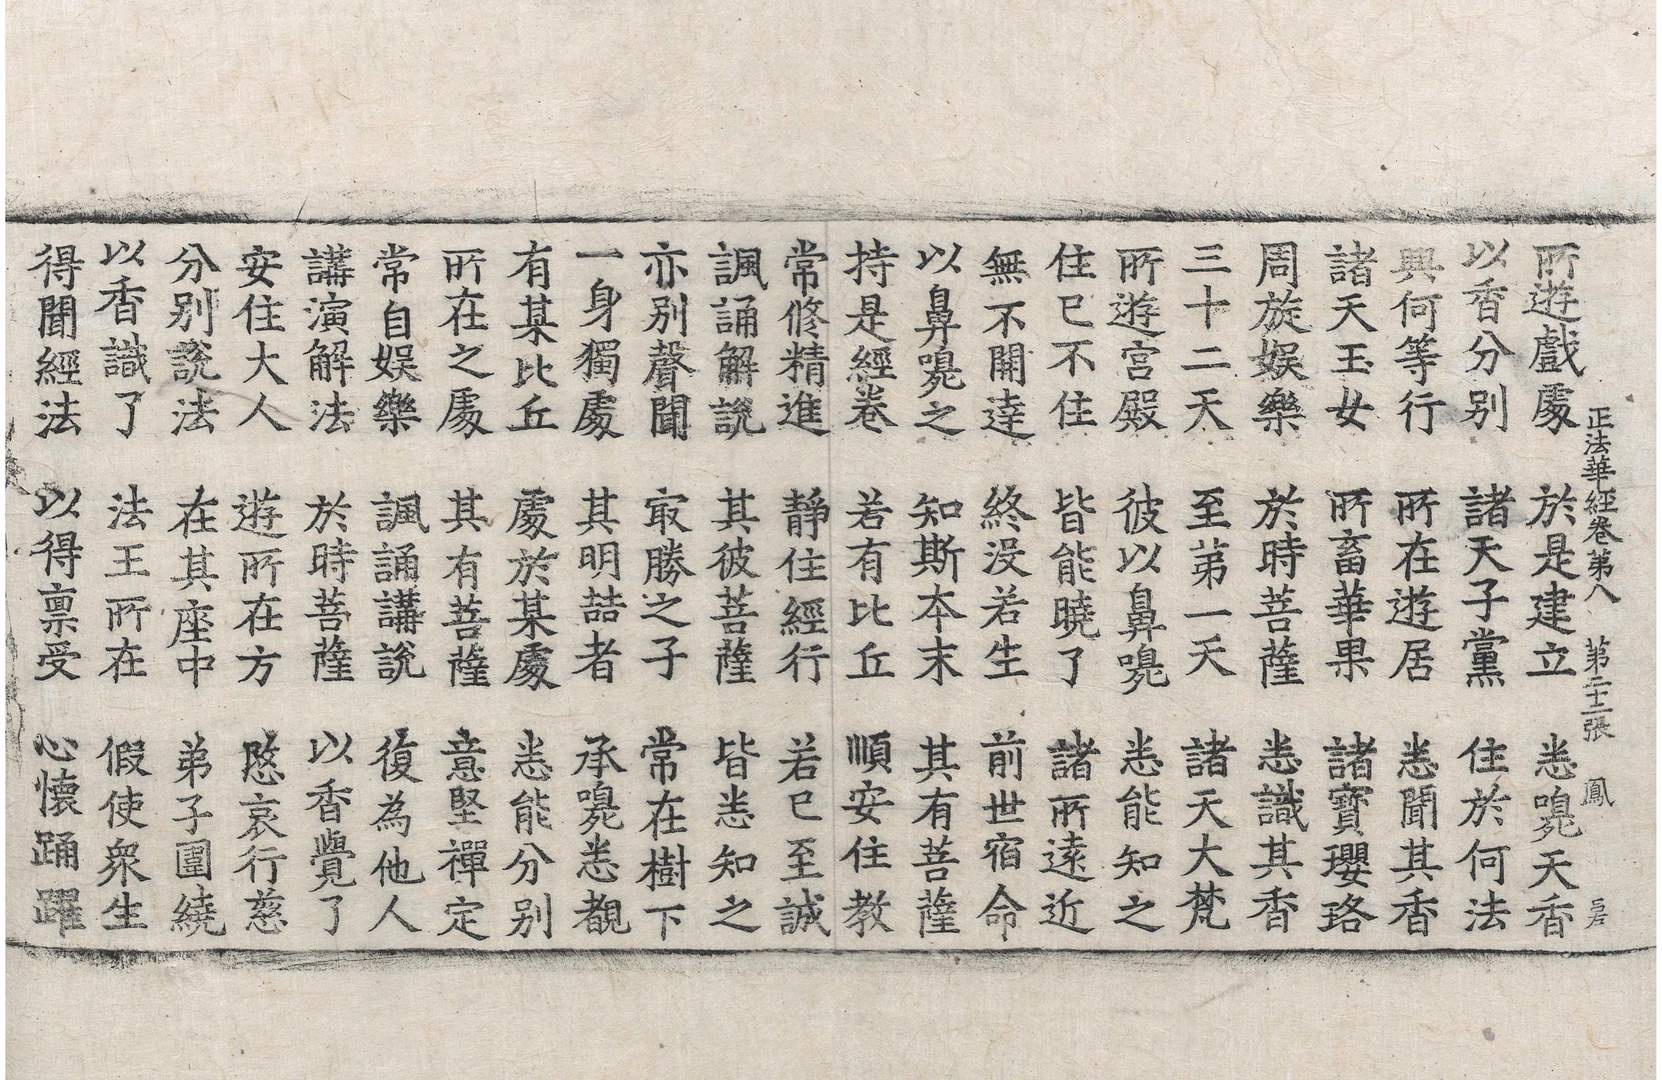 正法華經卷第八 第二十二張 鳳
所遊戲處 於是建立 悉嗅天香
以香分别 諸天子黨 住於何法
興何等行 所在遊居 悉聞其香
諸天玉女 所畜華果 諸寶瓔珞
周旋娛樂 於時菩薩 悉識其香
三十二天 至第一天 諸天大梵
所遊宮殿 彼以鼻嗅 悉能知之
住已不住 皆能曉了 諸所遠近
無不開達 終没若生 前世宿命
以鼻嗅之 知斯本末 其有菩薩
持是經卷 若有比丘 順安住教
常修精進 静住經行 若已至誠
諷誦解說 其彼菩薩 皆悉知之
亦别聲聞 㝡勝之子 常在樹下
一身獨處 其明喆者 承嗅悉覩
有某比丘 處於某處 悉能分别
所在之處 其有菩薩 意堅禪定
常自娛樂 諷誦講說 復為他人
講演解法 於時菩薩 以香覺了
安住大人 遊所在方 愍哀行慈
分别說法 在其座中 弟子圍繞
以香識了 法王所在 假使衆生
得聞經法 以得禀受 心懷踊躍